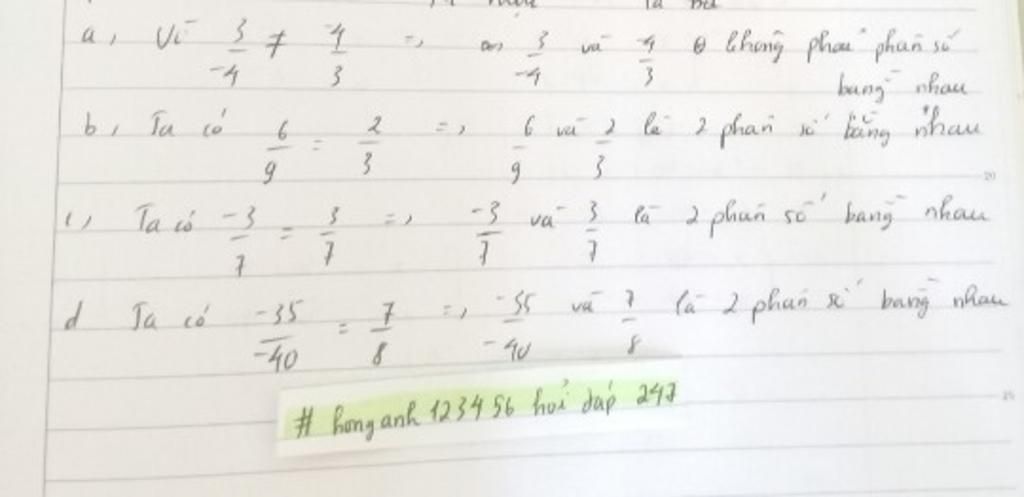 a, Vì 3/-4 ≠ -4/3 => 3/-4 và -4/3 không phải phân số
bằng nhau
b, Ta có 6/9 = 2/3 => 6/9 và 2/3 là 2 phân số bằng nhau
c, Ta có -3/7 = 3/7 => -3/7 và 3/7 là 2 phân số bằng nhau
d Ta có -35/-40 = 7/8 => -35/-40 và 7/8 là 2 phân số bằng nhau
# hong anh 123456 hoi đáp 247